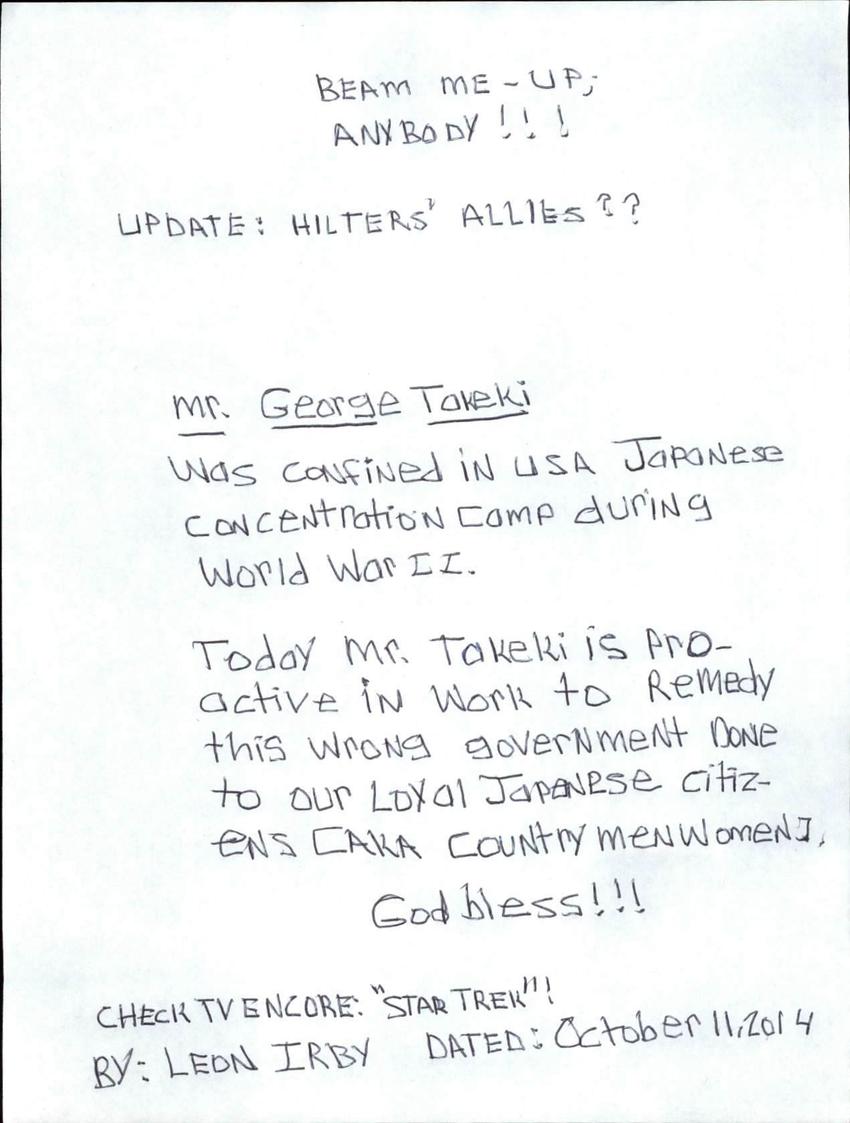 BEAM ME-UP;
ANYBODY!!!
UPDATE: HILTERS' ALLIES??
mr. George Takeki
Was confined in USA Japanese
concentration camp during
World War II.
Today mr. Takeki is pro-
active in work to Remedy
this wrong government Done
to our Loyal Japanese citiz-
ens [AKA countrymenwomen],
God bless!!!
CHECK TV ENCORE: "STAR TREK"!
BY: LEON IRBY DATED: October 11, 2014